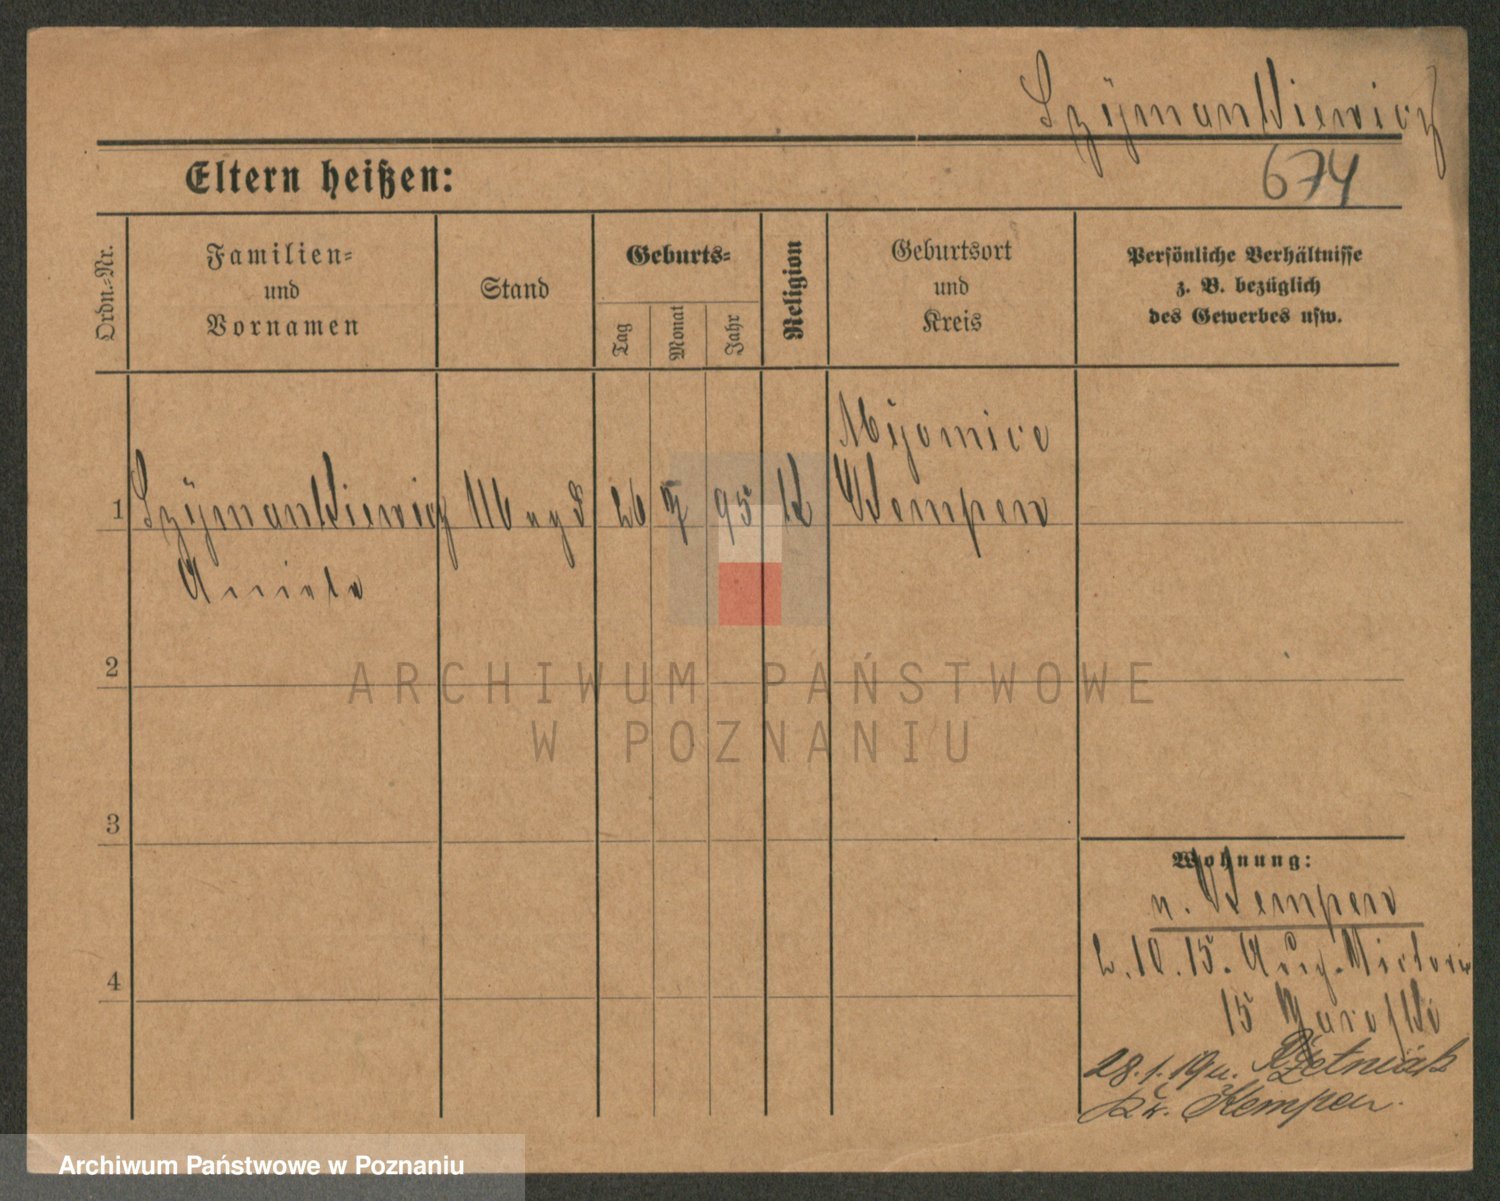 Szymankiewicz
Eltern heißen:
674
Ordn.-Nr.
Familien-
und
Vornamen
Stand
Geburts-
Tag
Monat
Jahr
Religion
Geburtsort
und
Kreis
Persönliche Verhältnisse
z. B. bezüglich
des Gewerbes usw.
Myomice
1 Szymankiewicz Magd 26 7 95 K Kempen
Aniela
2
ARCHIWUM PAŃSTWOWE
W POZNANIU
3
Wohnung:
n. Kempen
2.10.15. Aug. Victoria
15
4
28.1.19 u. Rzetniak
Kr. Kempen.
Archiwum Państwowe w Poznaniu